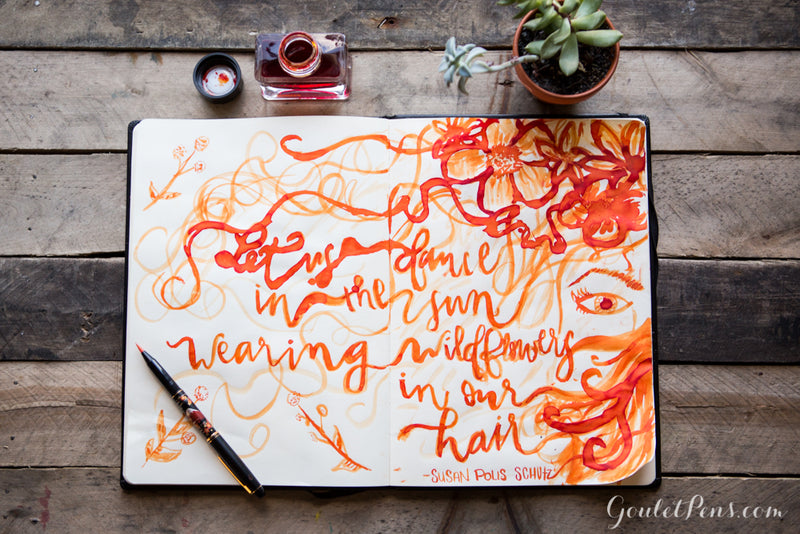 Let us dance
in the sun
wearing wildflowers
in our
hair
-SUSAN POLIS SCHUTZ
GouletPens.com